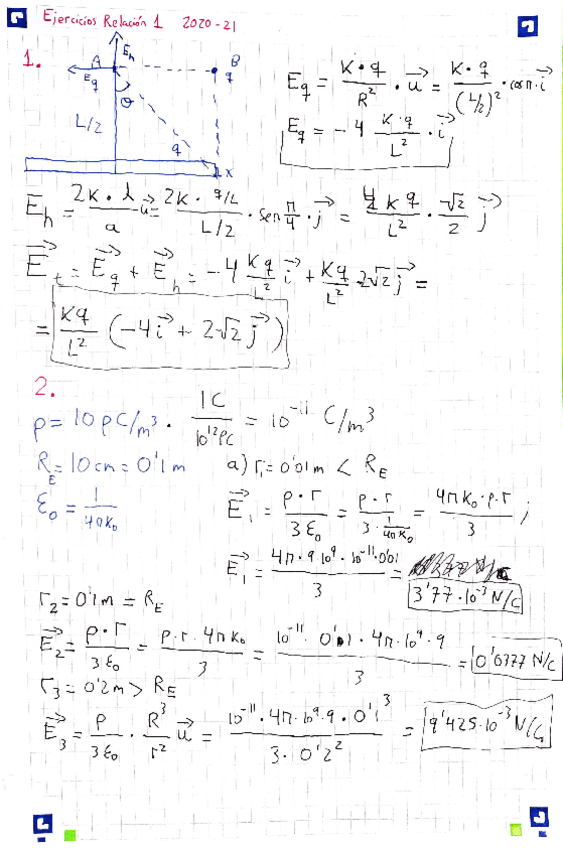 Ejercicios Relación 1 2020-21
1.
E⃗h
A B
E⃗q q
θ
L/2
q x
E⃗q = K·q/R² · u⃗ = K·q/(L/2)² · cosπ·i⃗
E⃗q = -4 K·q/L² · i⃗
E⃗h = 2K·λ/a u⃗ = 2K·q/L / L/2 · sen π/4 · j⃗ = 4Kq/L² · √2/2 j⃗
E⃗t = E⃗q + E⃗h = -4 Kq/L² i⃗ + Kq/L² 2√2 j⃗ =
= Kq/L² (-4i⃗ + 2√2 j⃗)
2.
ρ = 10 pC/m³ · 1C/10¹²pC = 10⁻¹¹ C/m³
R_E = 10cm = 0'1m a) r₁ = 0'01m < R_E
ε₀ = 1/4πK₀ E⃗₁ = ρ·r/3ε₀ = ρ·r/3·1/4πK₀ = 4πK₀·ρ·r/3 ;
E⃗₁ = 4π·9·10⁹·10⁻¹¹·0'01/3 = 3'77·10⁻³ N/C
r₂ = 0'1m = R_E
E⃗₂ = ρ·r/3ε₀ = ρ·r·4πK₀/3 = 10⁻¹¹·0'1·4π·10⁹·9/3 = 0'0377 N/C
r₃ = 0'2m > R_E
E⃗₃ = ρ/3ε₀ · R³/r² u⃗ = 10⁻¹¹·4π·10⁹·9·0'1³/3·0'2² = 9'425·10⁻³ N/C